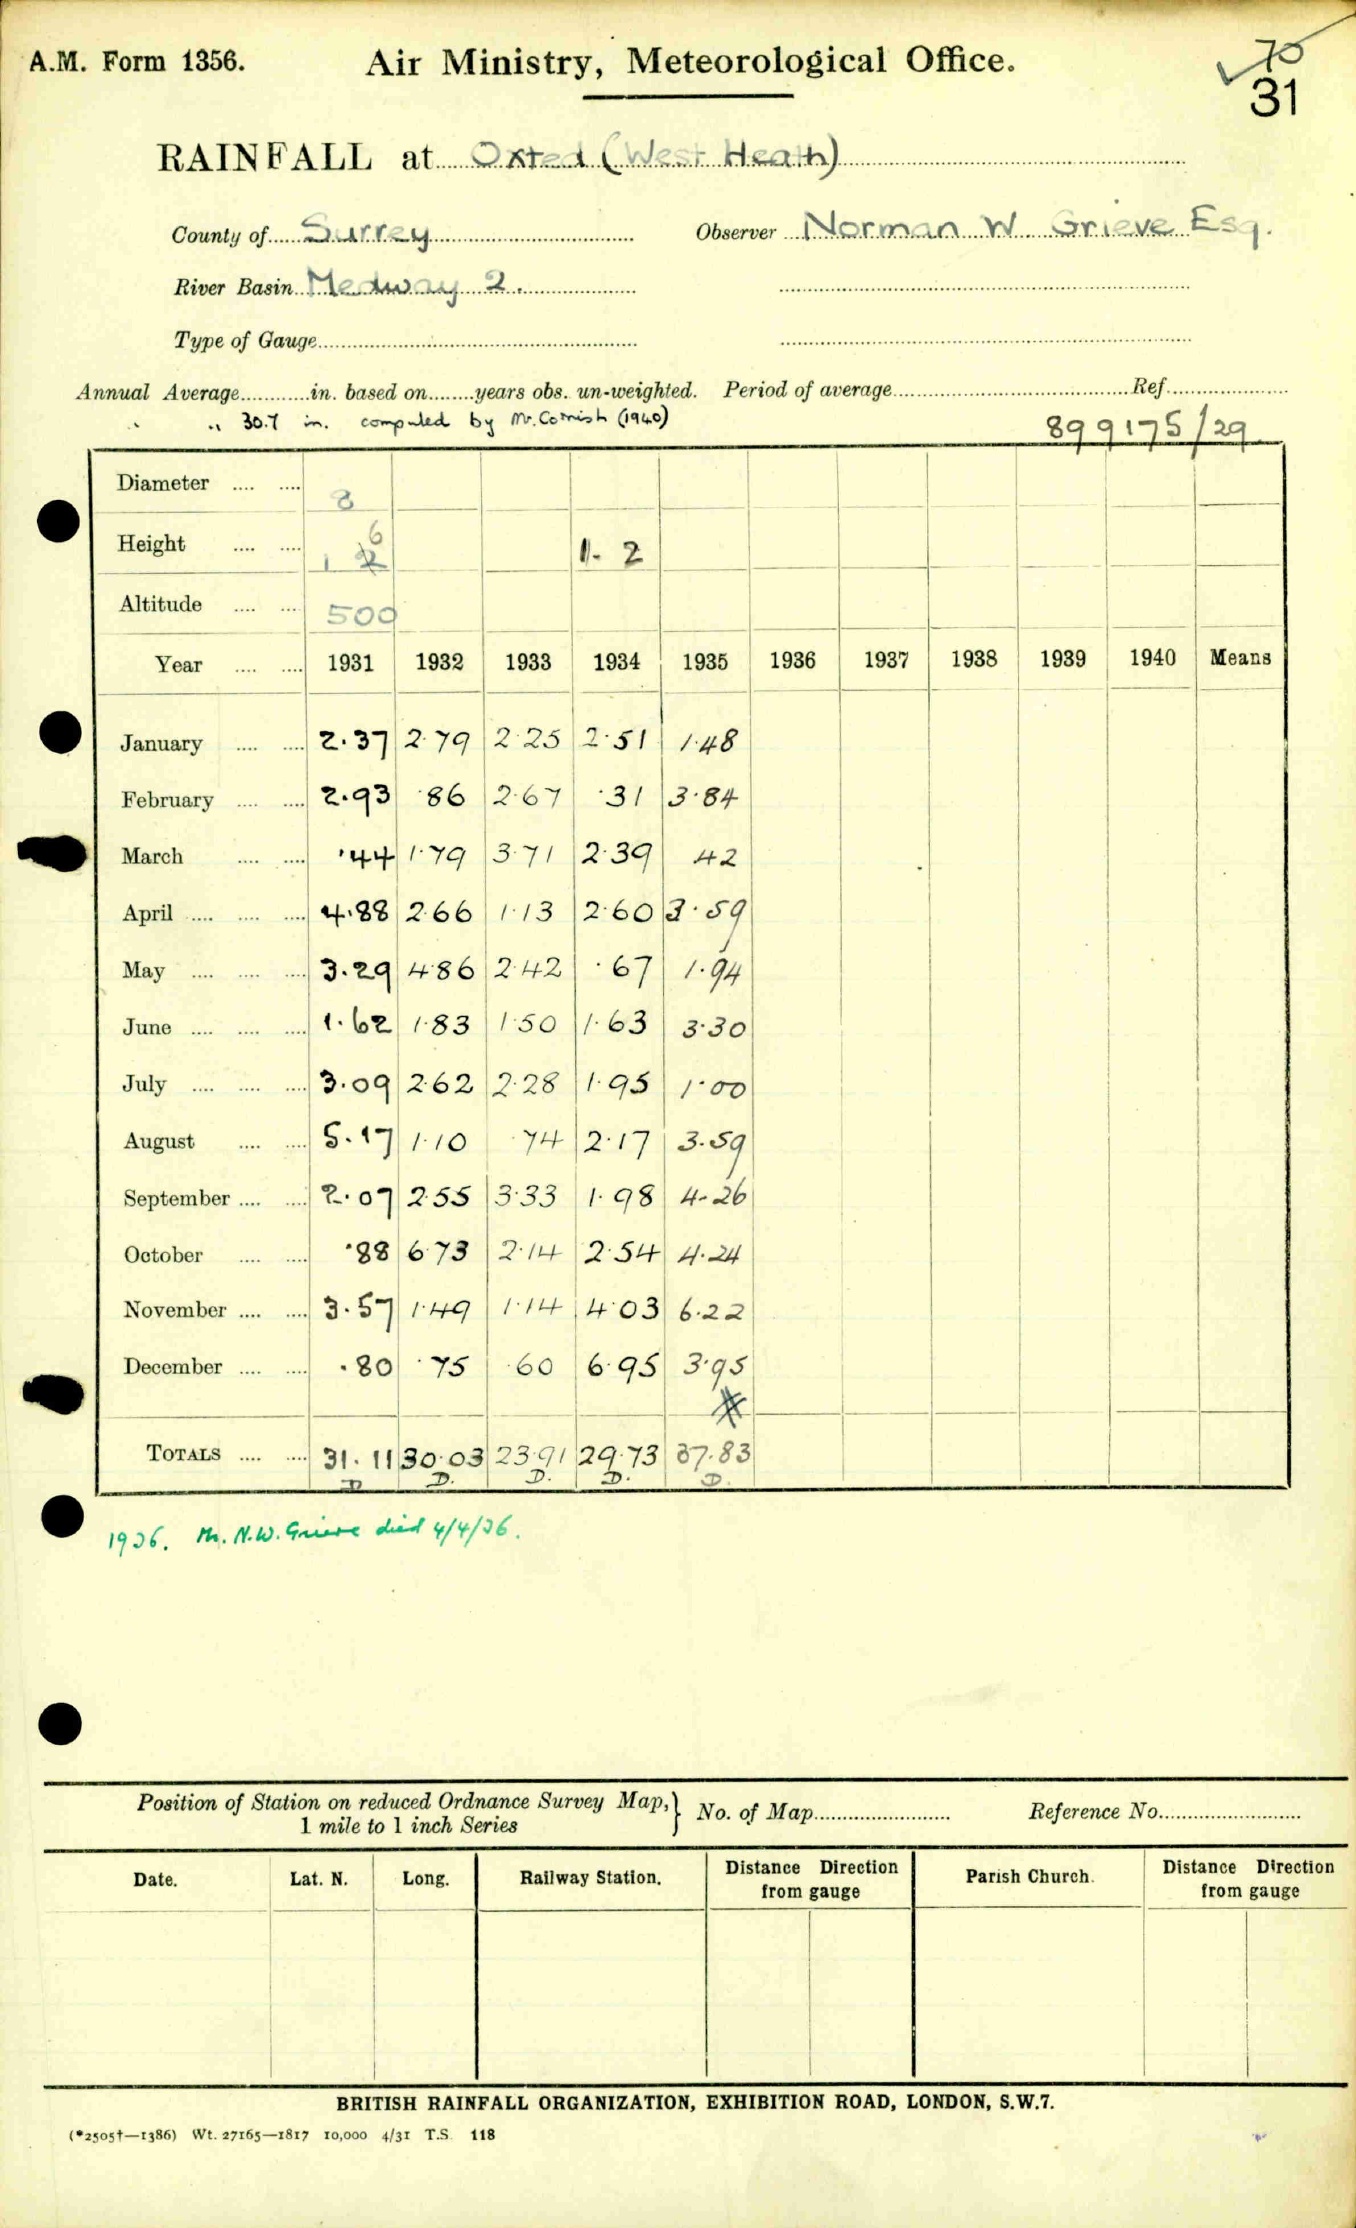 A.M. Form 1356.
Air Ministry, Meteorological Office.
70
31
RAINFALL at Oxted (West Heath)
County of Surrey Observer Norman W Grieve Esq.
River Basin Medway 2.
Type of Gauge
Annual Average in. based on years obs. un-weighted. Period of average Ref.
" " 30.7 in. computed by Mr. Cornish (1940)
899175/29
Diameter .... .... 8
Height .... .... 1 2 6 1. 2
Altitude .... .... 500
Year .... .... 1931 1932 1933 1934 1935 1936 1937 1938 1939 1940 Means
January .... .... 2.37 2.79 2.25 2.51 1.48
February .... .... 2.93 .86 2.67 .31 3.84
March .... .... .44 1.79 3.71 2.39 42
April .... .... .... 4.88 2.66 1.13 2.60 3.59
May .... .... .... 3.29 4.86 2.42 .67 1.94
June .... .... .... 1.62 1.83 1.50 1.63 3.30
July .... .... .... 3.09 2.62 2.28 1.95 1.00
August .... .... 5.17 1.10 .74 2.17 3.59
September .... .... 2.07 2.55 3.33 1.98 4.26
October .... .... .88 6.73 2.14 2.54 4.24
November .... .... 3.57 1.49 1.14 4.03 6.22
December .... .... .80 .75 .60 6.95 3.95
TOTALS .... .... 31.11 30.03 23.91 29.73 37.83
D D. D. D. D.
1936. Mr. N.W. Grieve died 4/4/36.
Position of Station on reduced Ordnance Survey Map, } No. of Map Reference No.
1 mile to 1 inch Series
Date. Lat. N. Long. Railway Station. Distance Direction Parish Church. Distance Direction
from gauge from gauge
BRITISH RAINFALL ORGANIZATION, EXHIBITION ROAD, LONDON, S.W.7.
(*2505†—1386) Wt. 27165—1817 10,000 4/31 T.S. 118